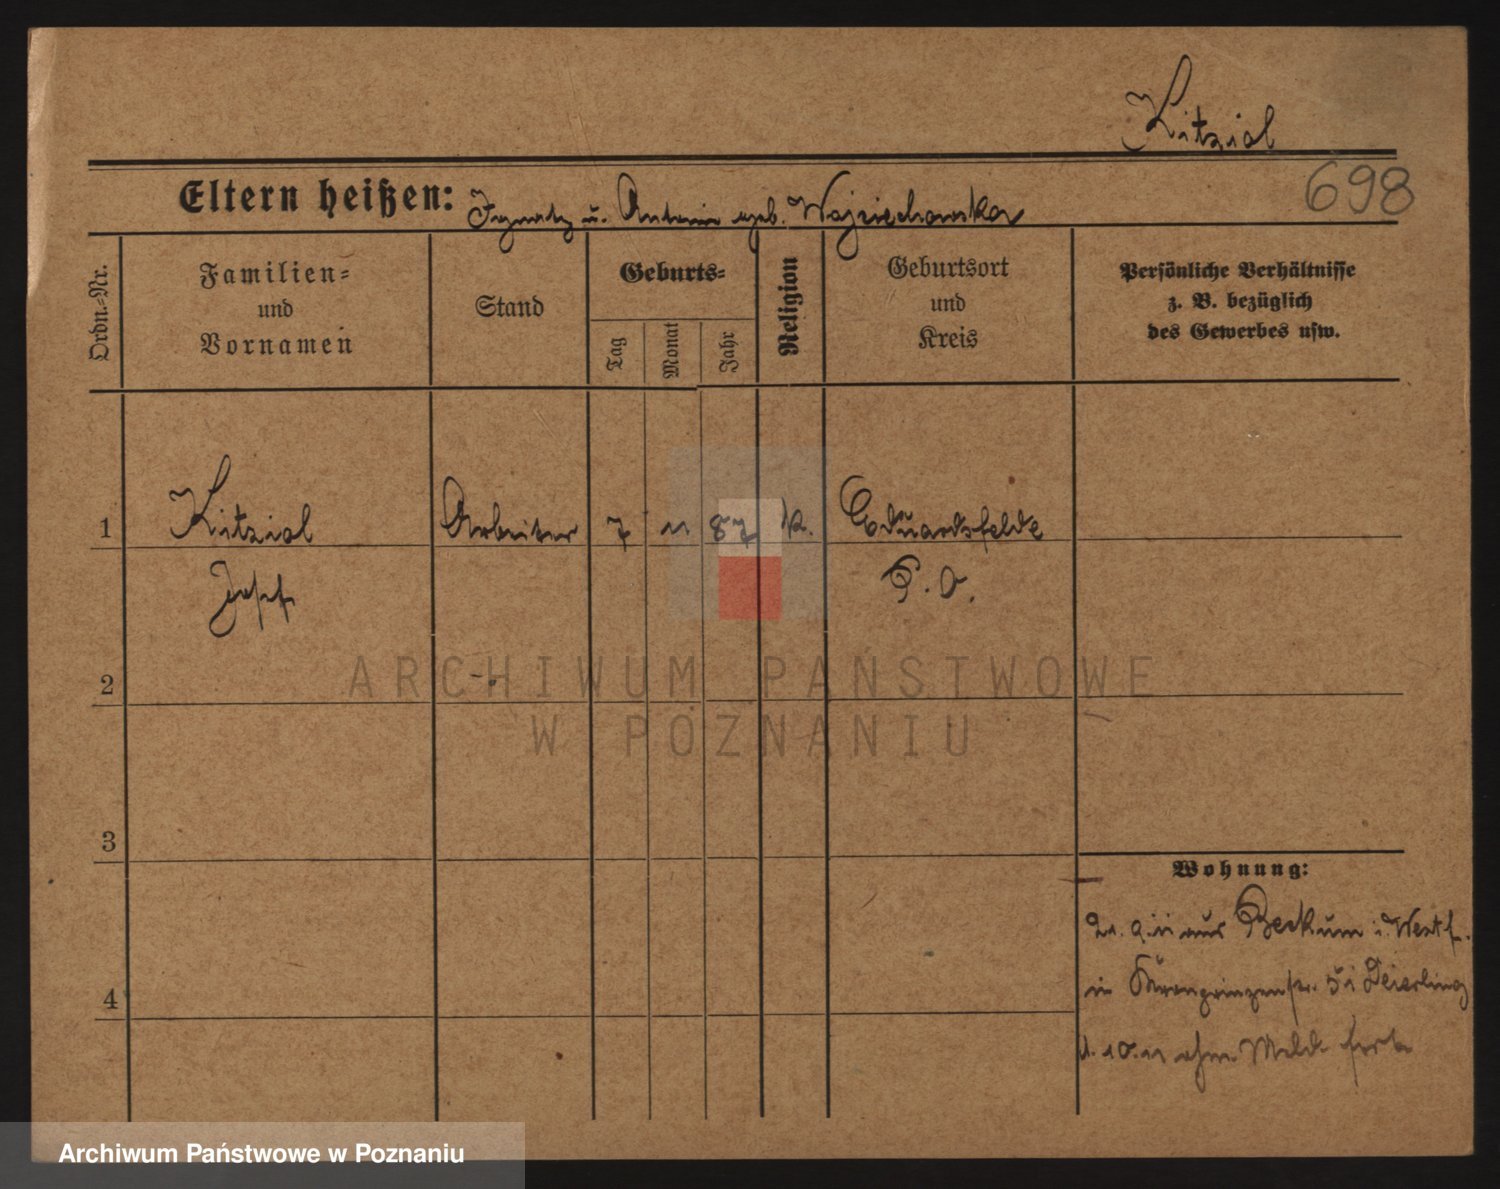 Kitziol
698
Eltern heißen: Ignatz u. Antonie geb. Wojziechowska
Ordn.-Nr.
Familien=
und
Vornamen
Stand
Geburts=
Tag
Monat
Jahr
Religion
Geburtsort
und
Kreis
Persönliche Verhältnisse
z. B. bezüglich
des Gewerbes usw.
1 Kitziol Arbeiter 7 11 87 k. Eduardsfelde
Josef P. O.
2
ARCHIWUM PAŃSTWOWE
W POZNANIU
3
Wohnung:
21. 9. 11 aus Beckum i. Westf.
4
in Kronprinzenstr. 51 Deierling
1. 10. 11 ohne Meld. fort
Archiwum Państwowe w Poznaniu